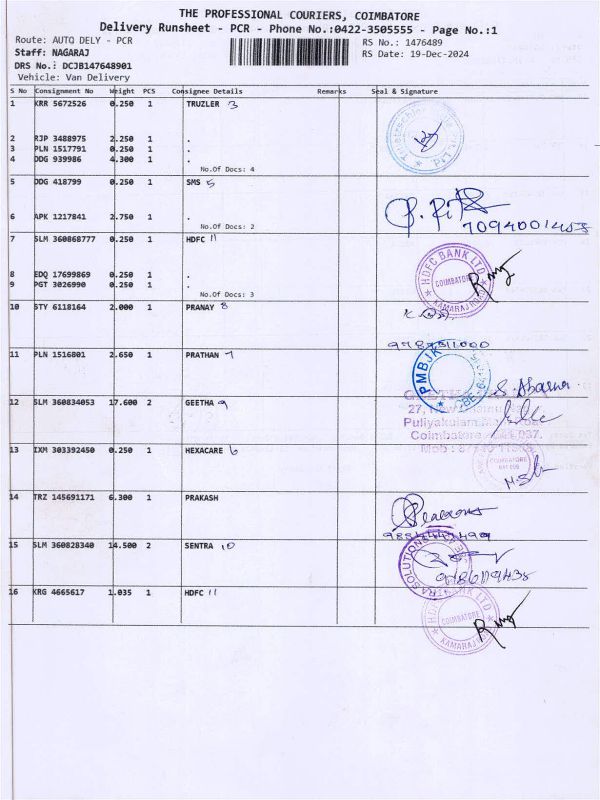 THE PROFESSIONAL COURIERS, COIMBATORE
Delivery Runsheet - PCR - Phone No.:0422-3505555 - Page No.:1
Route: AUTO DELY - PCR RS No.: 1476489
Staff: NAGARAJ RS Date: 19-Dec-2024
DRS No.: DCJB147648901
Vehicle: Van Delivery
S No Consignment No Weight PCS Consignee Details Remarks Seal & Signature
1 KRR 5672526 0.250 1 TRUZLER 3
2 RJP 3488975 2.250 1 .
3 PLN 1517791 0.250 1 .
4 DDG 939986 4.300 1 .
No.Of Docs: 4
5 DDG 418799 0.250 1 SMS 5
6 APK 1217841 2.750 1 .
No.Of Docs: 2
7 SLM 360868777 0.250 1 HDFC 11
HDFC BANK LTD
COIMBATORE
8 EDQ 17699869 0.250 1 .
9 PGT 3026990 0.250 1 .
No.Of Docs: 3
10 STY 6118164 2.000 1 PRANAY 8
11 PLN 1516801 2.650 1 PRATHAN 7
PMBJK
12 SLM 360834053 17.600 2 GEETHA 9
Puliyakulam
Coimbatore
13 IXM 303392450 0.250 1 HEXACARE 6
COIMBATORE
14 TRZ 145691171 6.300 1 PRAKASH
15 SLM 360828340 14.500 2 SENTRA 10
SOLUTIONS
16 KRG 4665617 1.035 1 HDFC 11
HDFC BANK LTD
COIMBATORE